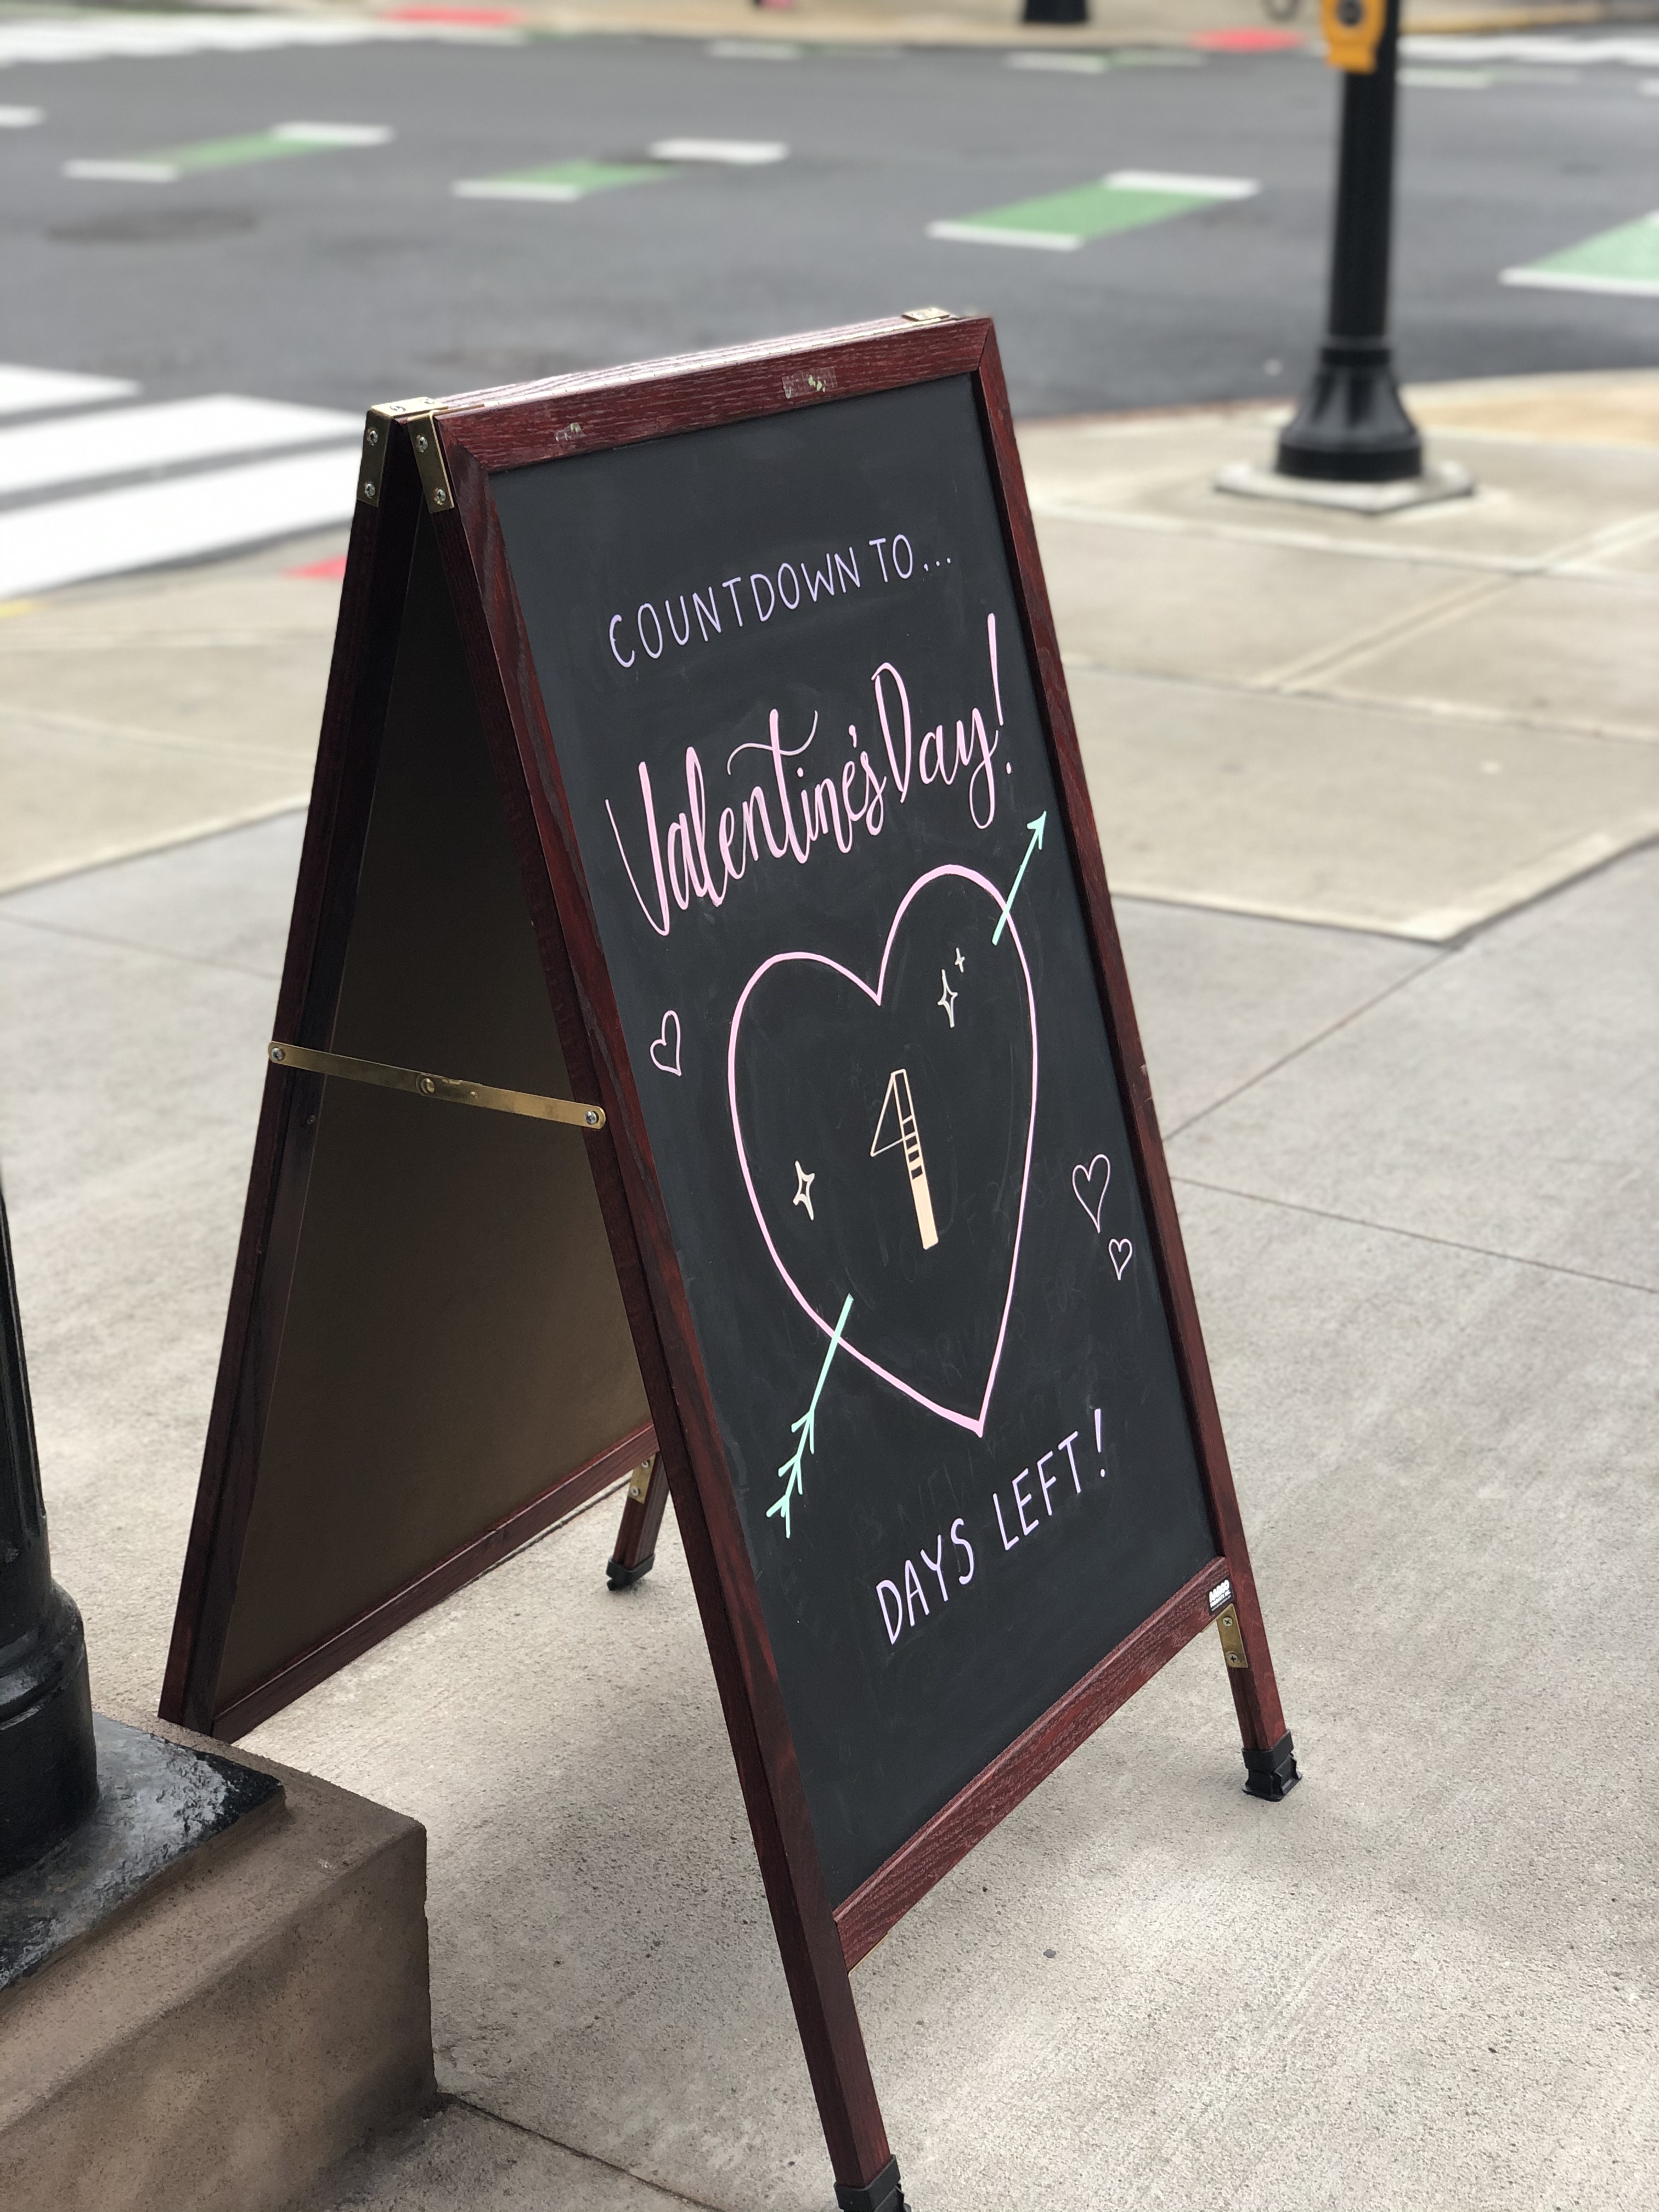 COUNTDOWN TO...
Valentine's Day!
4
DAYS LEFT!